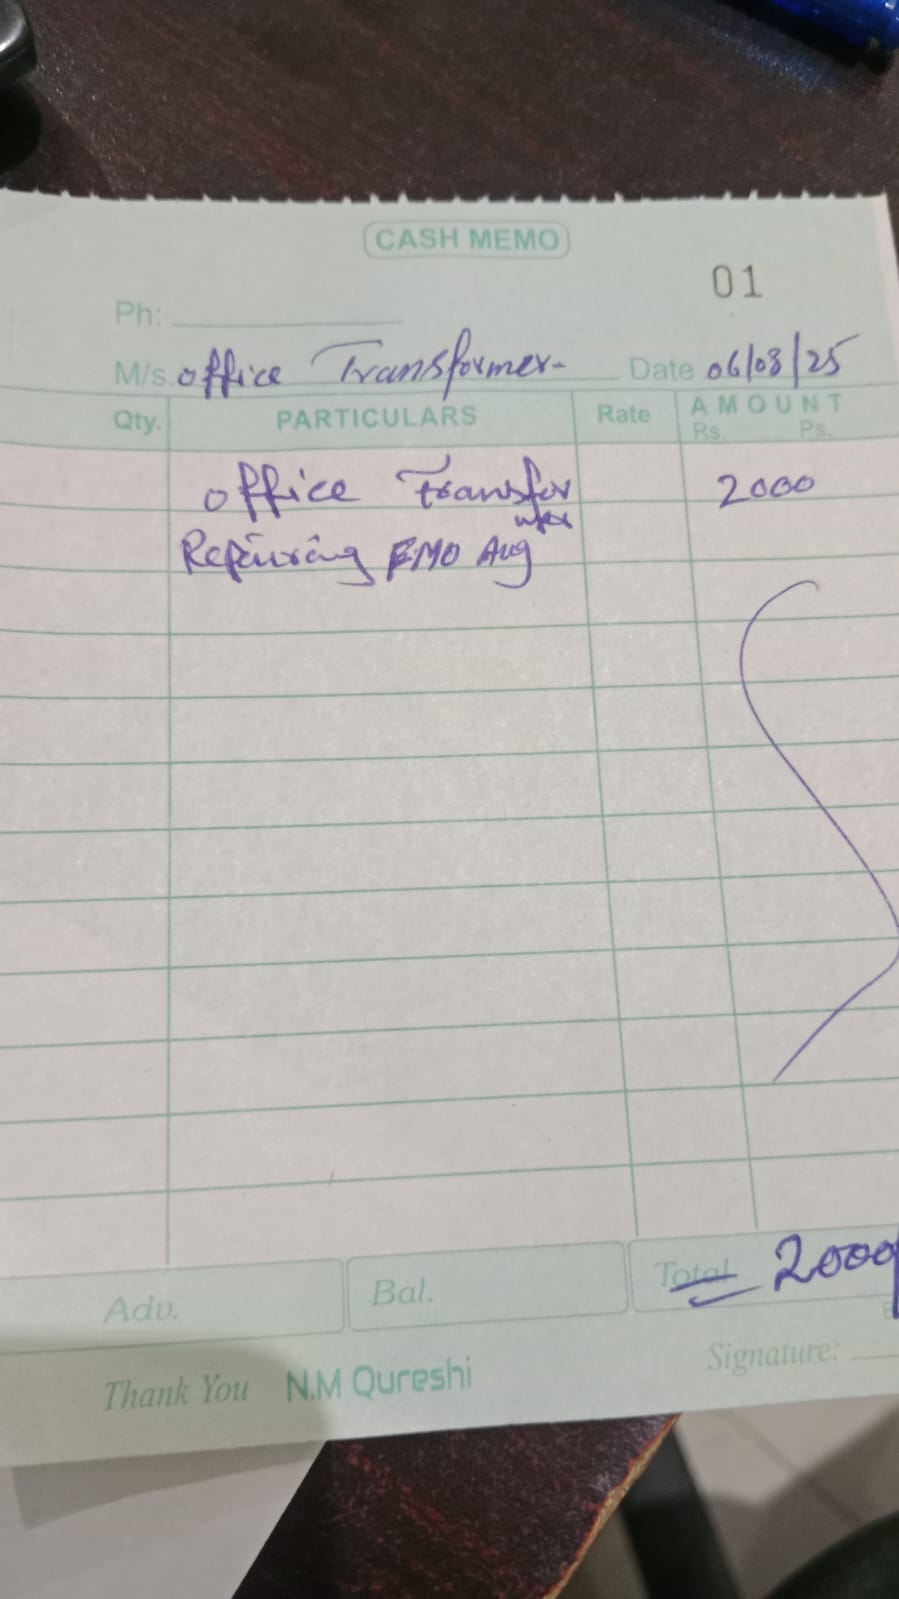 CASH MEMO
01
Ph:
M/s. office Transformer- Date 06/08/25
Qty. PARTICULARS Rate AMOUNT
Rs. Ps.
office Transfor 2000
mer
Repairing EMO Aug
Adv. Bal. Total 2000
Signature:
Thank You N.M Qureshi